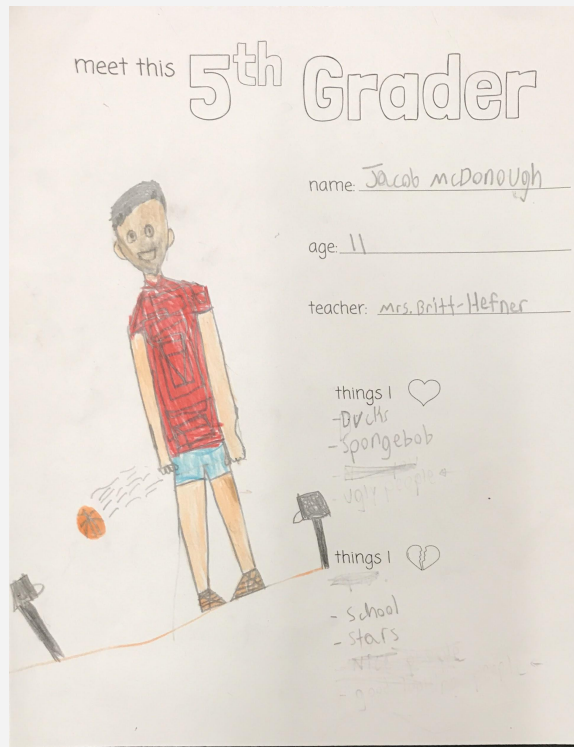 meet this 5th Grader
name: Jacob McDonough
age: 11
teacher: Mrs. Britt-Hefner
things I
-Ducks
-Spongebob
- ugly people
things I
- school
- stars